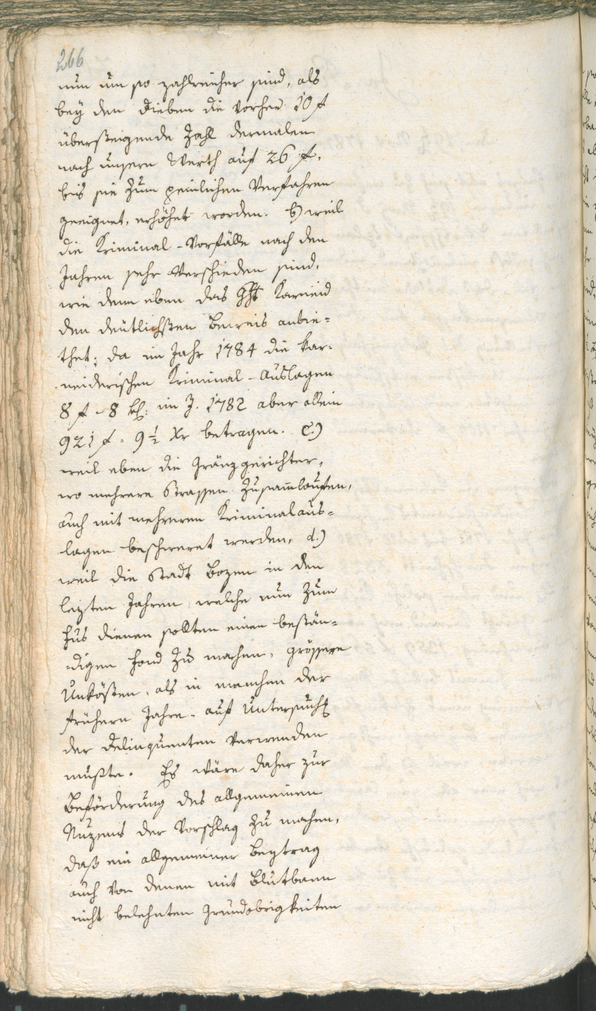 266
nun um so zahlreicher sind, als
bey den Dieben die vorher 10 f
übersteigende Zahl dermalen
nach unsern Werth auf 26 f.
bis sie zum peinlichen Verfahren
geeignet, erhöhet worden. b) weil
die Kriminal-Vorfälle nach den
Jahren sehr verschieden sind,
wie dann eben das Ght Karneid
den deütlichsten Beweis anbie=
thet; da im Jahr 1784 die kar=
neiderischen Kriminal-Auslagen
8 f 8 im J. 1782 aber allein
921 f. 9 ½ Xr betragen. c.)
weil eben die Gränzgerichter,
wo mehrere Strassen zusammlaufen,
auch mit mehreren Kriminalaus=
lagen beschweret werden, d.)
weil die Stadt Bozen in den
lezten Jahren, welche nun zum
Fus dienen sollten einen bestän=
digen Fond zu machen, grössere
Unkösten, als in manchen der
frühern Jahre auf Untersuchg
der Delinquenten verwenden
mußte. Es wäre daher zur
Beförderung des allgemeinen
Nuzens der Vorschlag zu machen,
daß ein allgemeiner Beytrag
auch von denen mit Blutbann
nicht belehnten Grundobrigkeiten